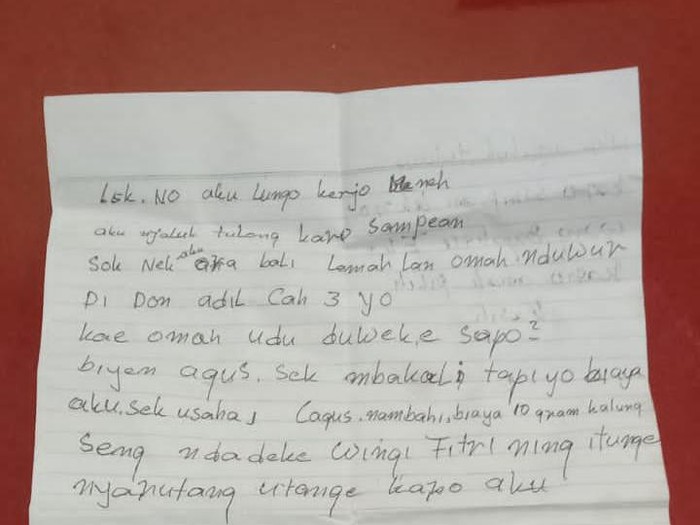 Lek. NO aku lungo kerjo Maneh
aku njaluk tulong karo Sampean
Sok Nek aku ora bali Lemah lan omah nduwur
Di Don adil Cah 3 yo
kae omah udu duweke sopo²
biyen agus. Sek mbakali tapi yo biaya
aku. sek usaha, (agus. nambahi, biaya 10 gram kalung
Seng ndadeke Wingi Fitri ning itunge
nyahutang utange karo aku